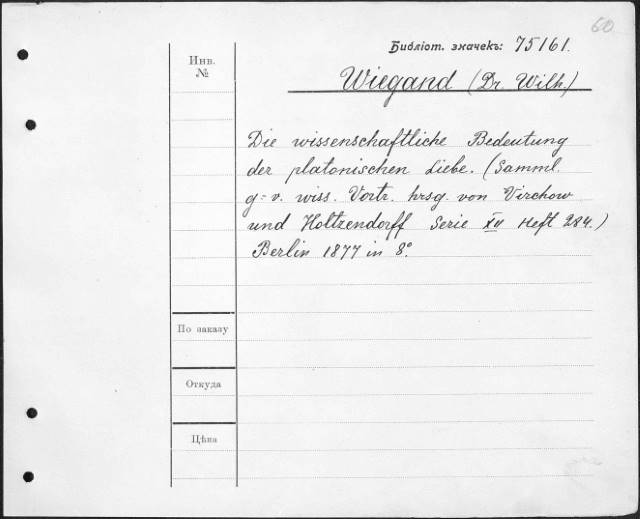 60
Библіот. значекъ: 75161.
Инв.
№
Wiegand (Dr. Wilh.)
Die wissenschaftliche Bedeutung
der platonischen Liebe. (Samml.
g=v. wiss. Vortr. hrsg. von Virchow
und Holtzendorff Serie XII Heft 284.)
Berlin 1877 in 8°.
По заказу
Откуда
Цѣна